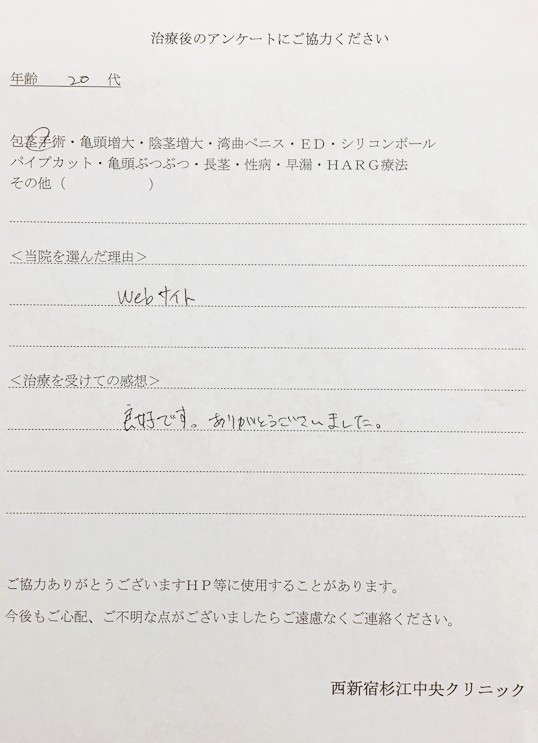 治療後のアンケートにご協力ください
年齢 20 代
包茎手術・亀頭増大・陰茎増大・湾曲ペニス・ED・シリコンボール
パイプカット・亀頭ぶつぶつ・長茎・性病・早漏・HARG療法
その他（　　　　　　　）
＜当院を選んだ理由＞
Webサイト
＜治療を受けての感想＞
良好です。ありがとうございました。
ご協力ありがとうございますHP等に使用することがあります。
今後もご心配、ご不明な点がございましたらご遠慮なくご連絡ください。
西新宿杉江中央クリニック